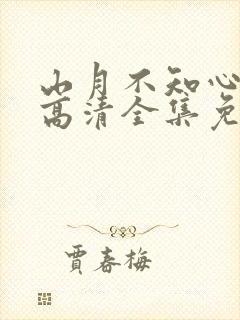 山月不知心
高清全集免
贾春梅